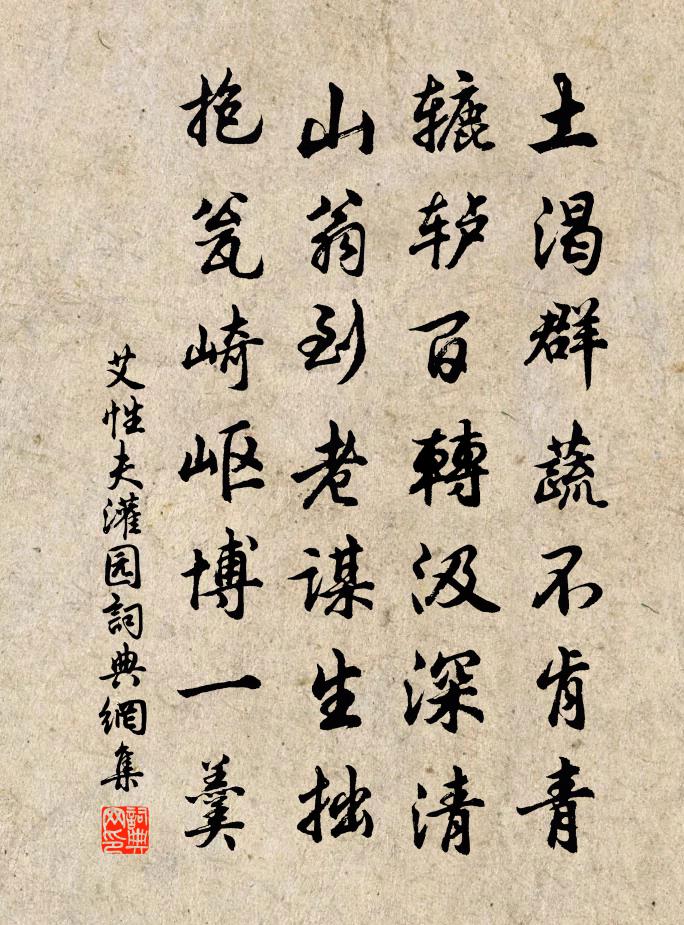 土渴群蔬不肯青
辘轳百轉汲深清
山翁到老謀生拙
抱瓮崎岖博一羹
艾性夫灌园詞典網集
詞典网印